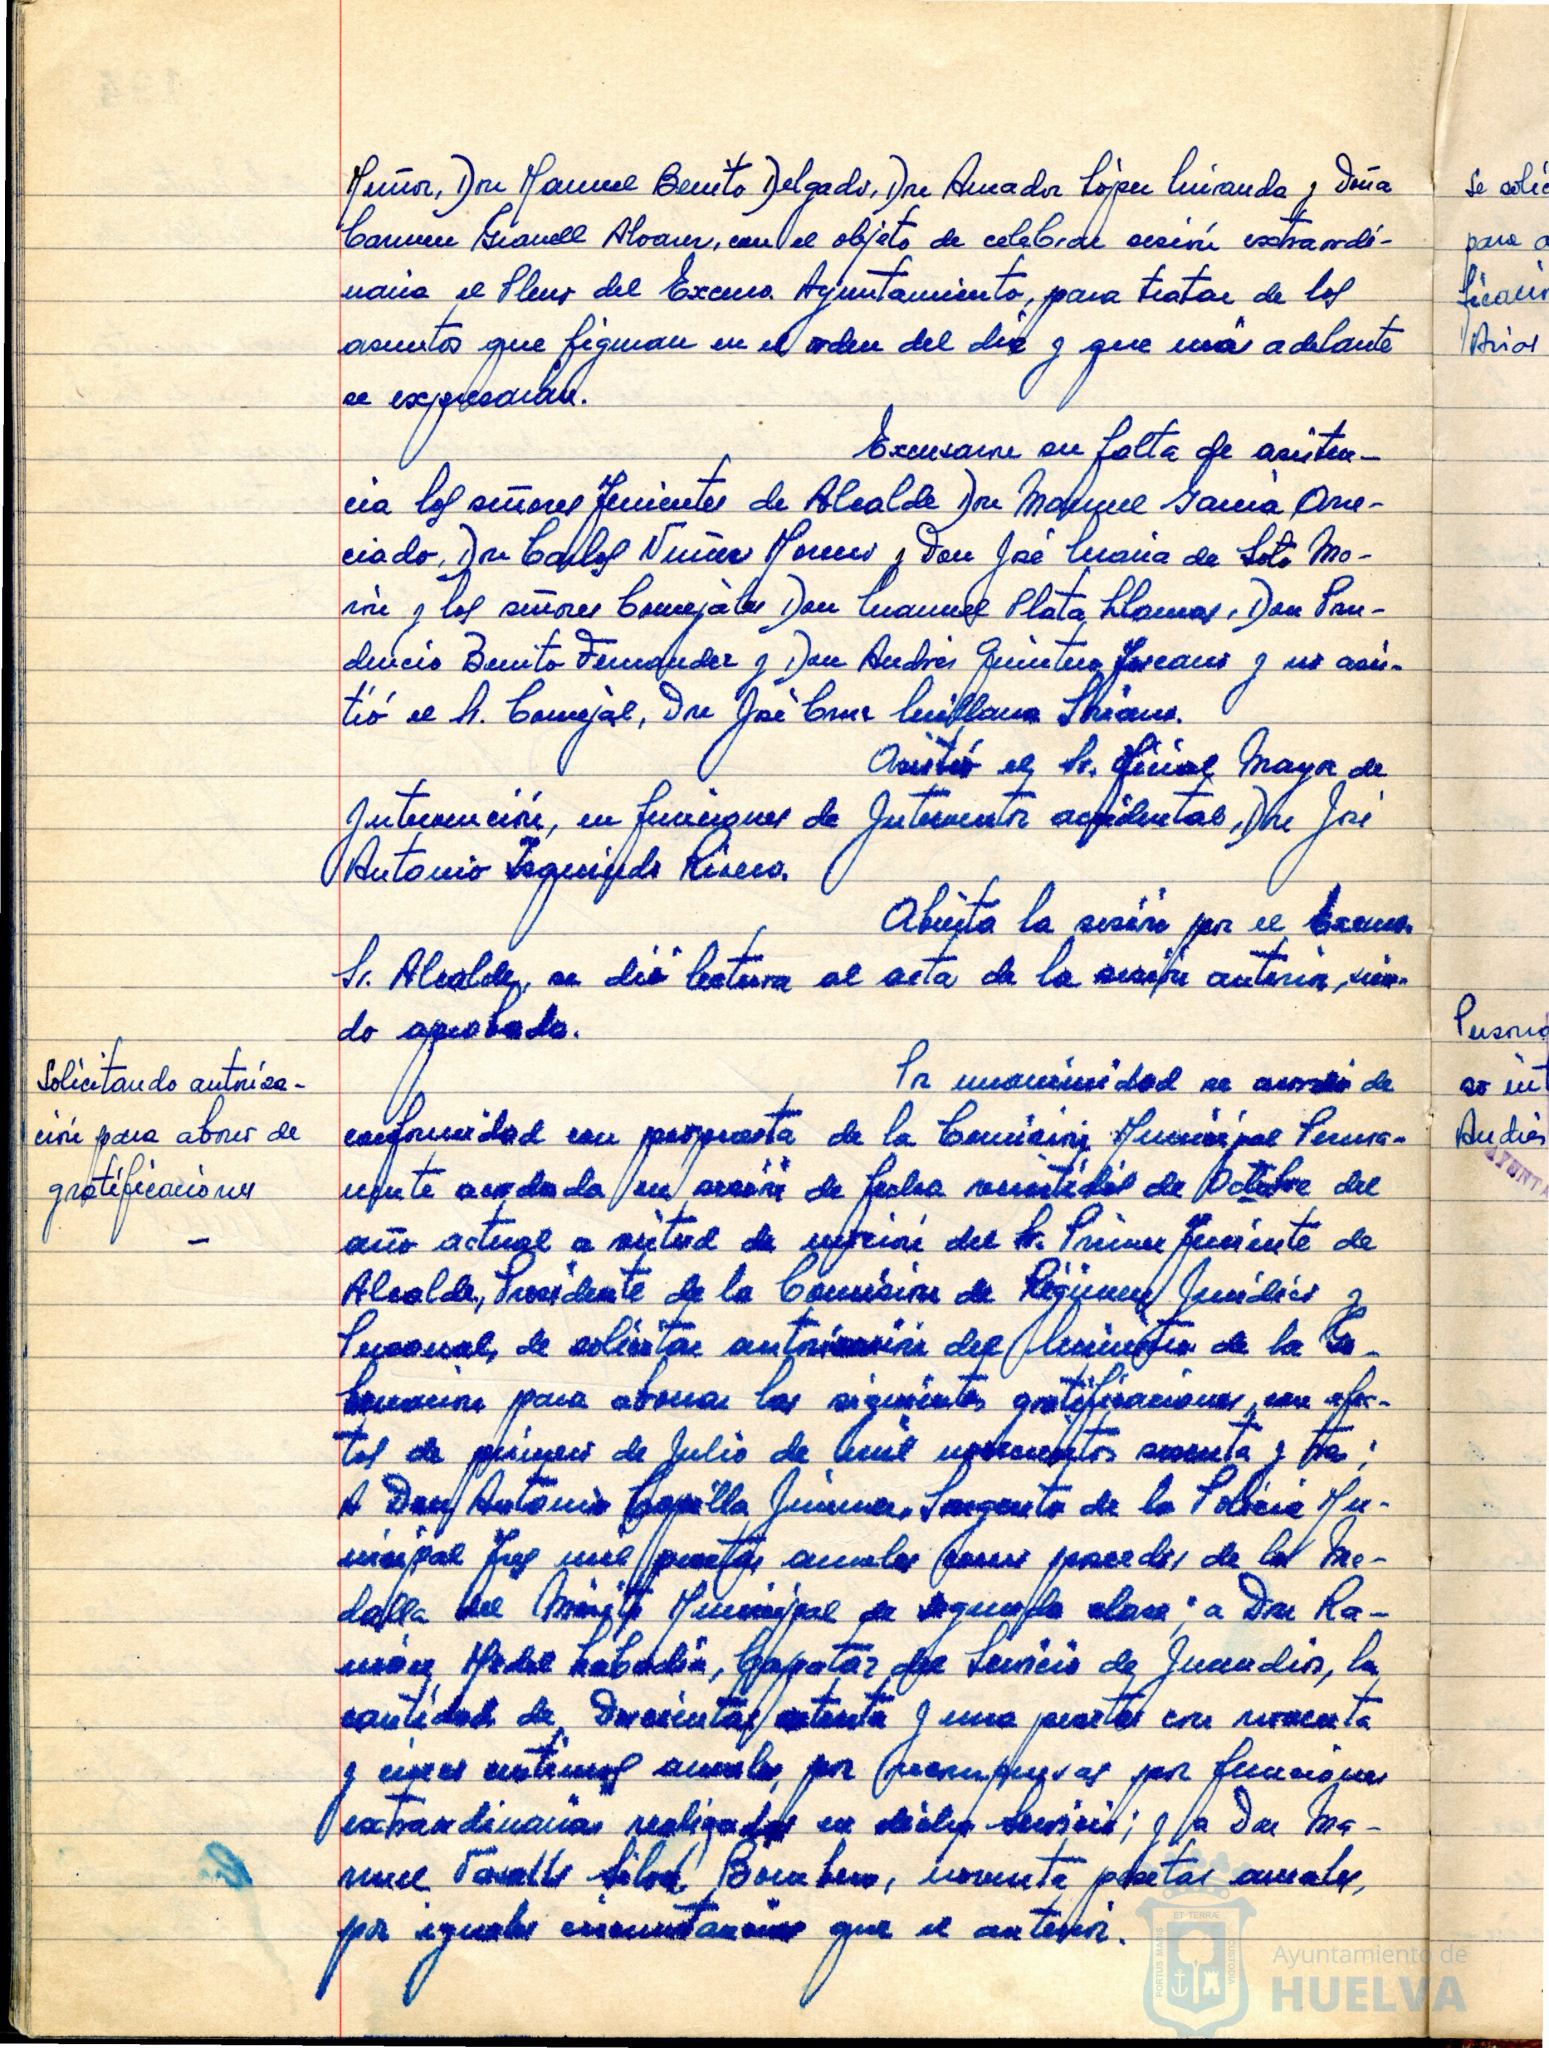 Muñoz, Don Manuel Benito Delgado, Don Amador López Miranda y Doña
Carmen Granell Alvarez, con el objeto de celebrar sesión extraordi-
naria el Pleno del Excmo. Ayuntamiento, para tratar de los
asuntos que figuran en el orden del día y que más adelante
se expresarán.
Excusaron su falta de asisten-
cia los señores Tenientes de Alcalde Don Manuel García One-
ciado, Don Carlos Núñez Moreno y Don José María de Soto Mo-
rón y los señores Concejales Don Manuel Plata Llamas, Don Pru-
dencio Benito Fernandez y Don Andrés Quintero Toscano y no asis-
tió el Sr. Concejal, Don José Cruz Millana
Asistió el Sr. Oficial Mayor de
Intervención, en funciones de Interventor accidental, Don José
Antonio Izquierdo Rivero.
Abierta la sesión por el Excmo.
Sr. Alcalde, se dió lectura al acta de la sesión anterior, sien-
do aprobada.
Solicitando autoriza-
ción para abono de
gratificaciones
-
Por unanimidad se acordó de
conformidad con propuesta de la Comisión Municipal Perma-
nente acordada en sesión de fecha veintidós de Octubre del
año actual a virtud de moción del Sr. Primer Teniente de
Alcalde, Presidente de la Comisión de Régimen Jurídico y
Personal, de solicitar autorización del Ministro de la Go-
bernación para abonar las siguientes gratificaciones, con efec-
tos de primero de Julio de mil novecientos sesenta y tres;
A Don Antonio Capilla Jimenez, Sargento de la Policía Mu-
nicipal tres mil pesetas anuales como poseedor de la Me-
dalla del Mérito Municipal de segunda clase; a Don Ra-
món Medel Labadía, Capataz del Servicio de Incendios, la
cantidad de Doscientas setenta y una pesetas con noventa
y cinco céntimos anuales, por recompensas por funciones
extraordinarias realizadas en dicho Servicio; y a Don Ma-
nuel Silva, Bombero, noventa pesetas anuales,
por iguales circunstancias que el anterior.
Se solic
para a
ficació
Arias
Persona
so int
Andrés
AYUNTA
PORTUS MARIS
ET TERRÆ
CUSTODIA
Ayuntamiento de
HUELVA